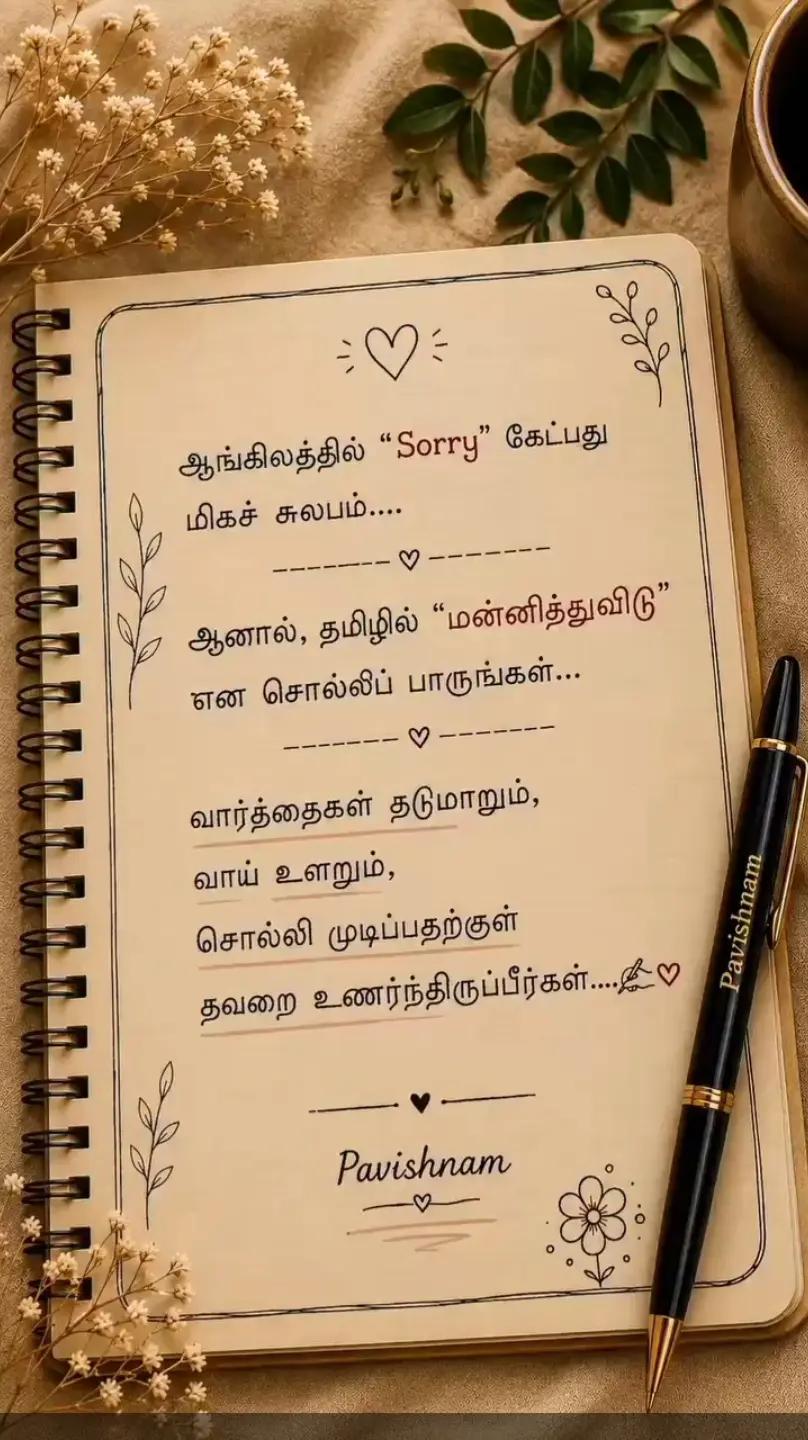 ஆங்கிலத்தில் “Sorry” கேட்பது
மிகச் சுலபம்....
ஆனால், தமிழில் “மன்னித்துவிடு”
என சொல்லிப் பாருங்கள்...
வார்த்தைகள் தடுமாறும்,
வாய் உளறும்,
சொல்லி முடிப்பதற்குள்
தவறை உணர்ந்திருப்பீர்கள்....✍❤
Pavishnam
Pavishnam